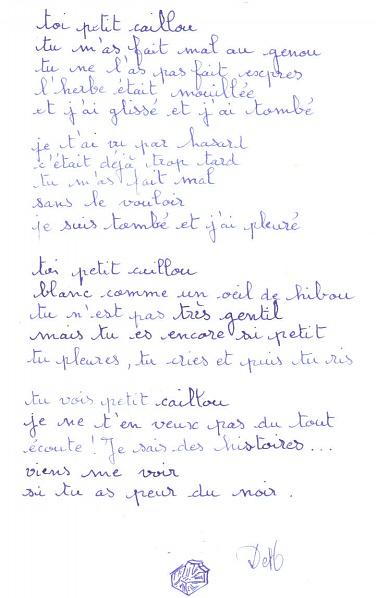 toi petit caillou
tu m'as fait mal au genou
tu ne l'as pas fait expres
l'herbe était mouillée
et j'ai glissé et j'ai tombé
je t'ai vu par hasard
c'était déjà trop tard
tu m'as fait mal
sans le vouloir
je suis tombé et j'ai pleuré
toi petit caillou
blanc comme un oeil de hibou
tu n'est pas très gentil
mais tu es encore si petit
tu pleures, tu cries et puis tu ris
tu vois petit caillou
je ne t'en veux pas du tout
écoute ! Je sais des histoires...
viens me voir
si tu as peur du noir.